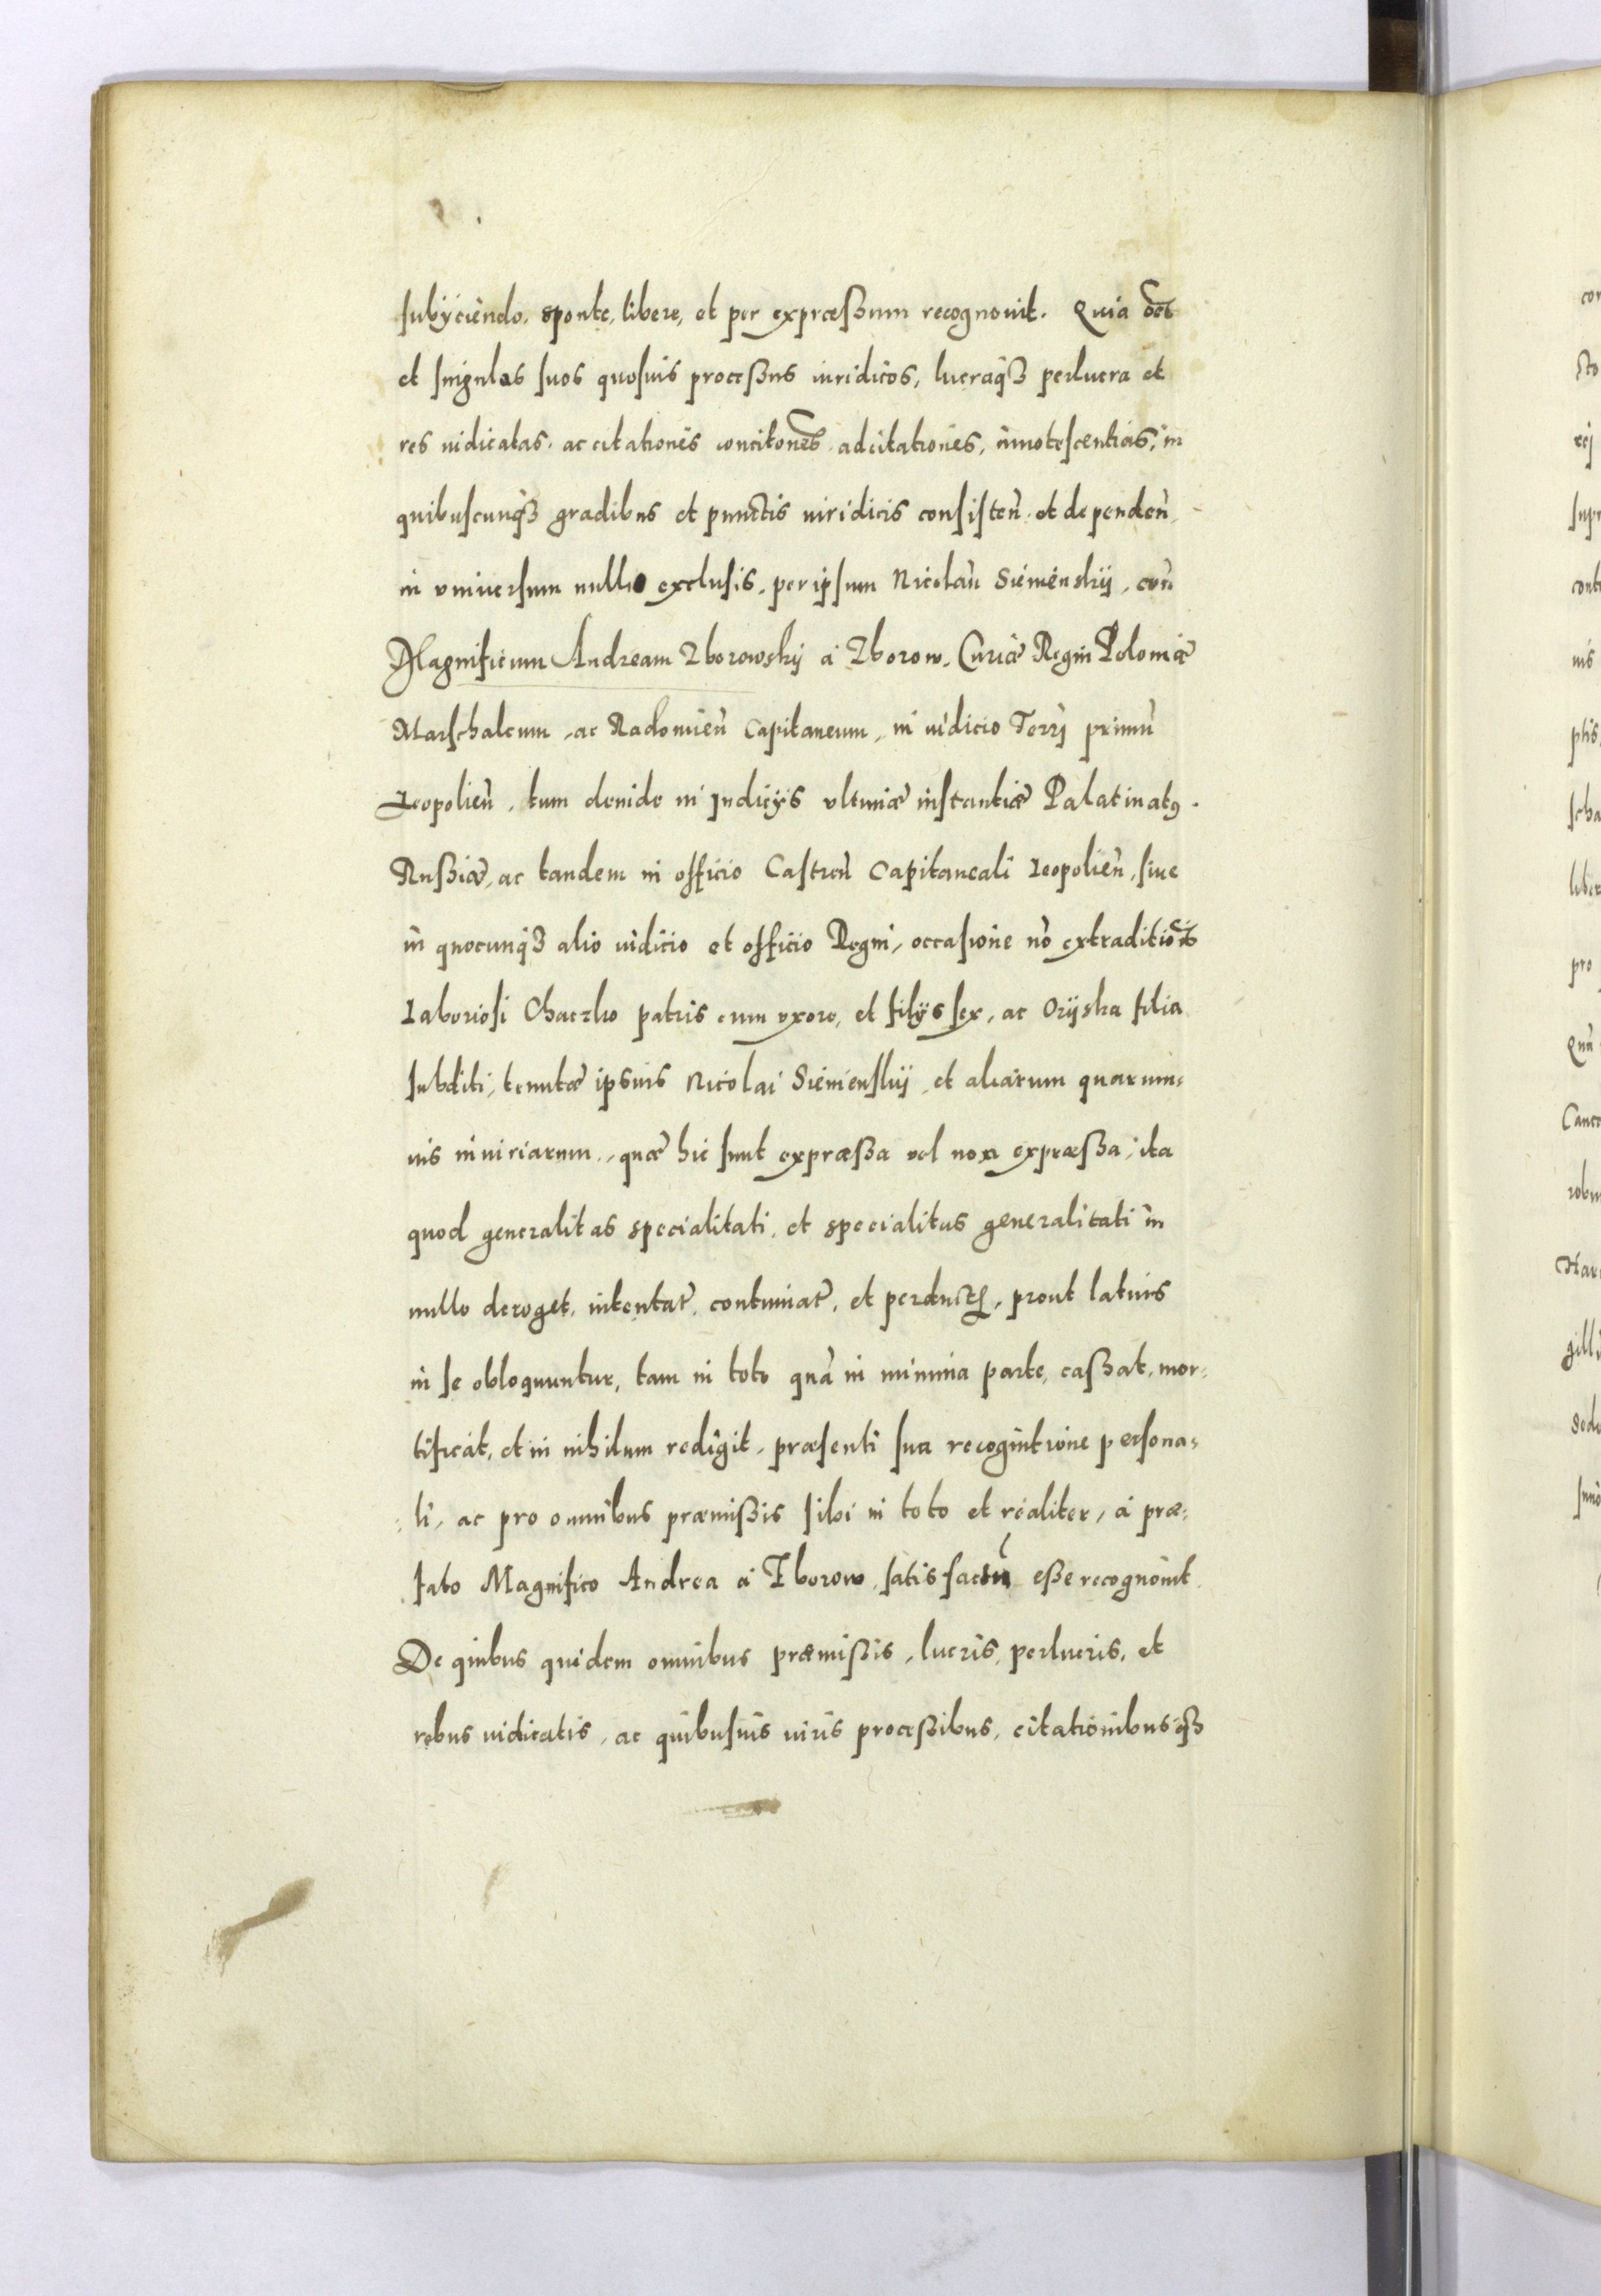 subÿciendo, sponte, libere, et per expræssum recognouit. Quia oẽs
et singulos suos quosuis processus iuridicos, lucraq3 perlucra et
res iudicatas, ac citationes concitoñes adcitationes, iñotescentias, in
quibuscunq3 gradibus et punctis iuridicis consisteñ et dependeñ
in vniuersum nullis exclusis, per ipsum Nicolaũ Siemienskij, con
Magnificum Andream Zborowskij à Zborow, Curiæ Regni Poloniæ
Marschalcum, ac Radomieñ Capitaneum, in iudicio Terrj primũ
Leopolieñ, tum deinde in Judicÿs vltimæ instantiæ Palatinatꝰ
Russiæ, ac tandem in officio Castreñ Capitaneali Leopolieñ, siue
in quocunq3 alio iudicio et officio Regni, occasione nõ extraditiois
Laboriosi Chaczko patris cum vxore, et filÿs sex, ac Orÿska filia
subditi, tenutæ ipsius Nicolai Siemienskij, et aliarum quarum=
uis iniuriarum, quæ hic sunt expræssa vel non expræssa, ita
quod generalitas specialitati, et specialitas generalitati in
nullo deroget, intentat̃, continuat̃, et perductꝭ, prout latius
in se obloquuntur, tam in toto quã in minima parte, cassat, mor=
tificat, et in nihilum redigit, præsenti sua recognitione persona=
=li, ac pro omnibus præmissis sibi in toto et realiter, à præ=
fato Magnifico Andrea à Zborow, satisfactũ esse recognouit.
De quibus quidem omnibus præmissis, lucris, perlucris, et
rebus iudicatis, ac quibusuis iuris processibus, citationibusq3